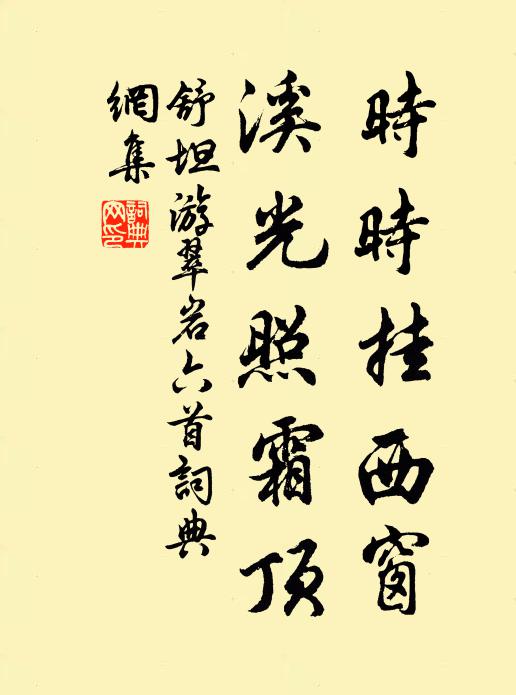 時時挂西窗
溪光照霜頂
舒坦游翠岩六首詞典
網集
詞典
网印